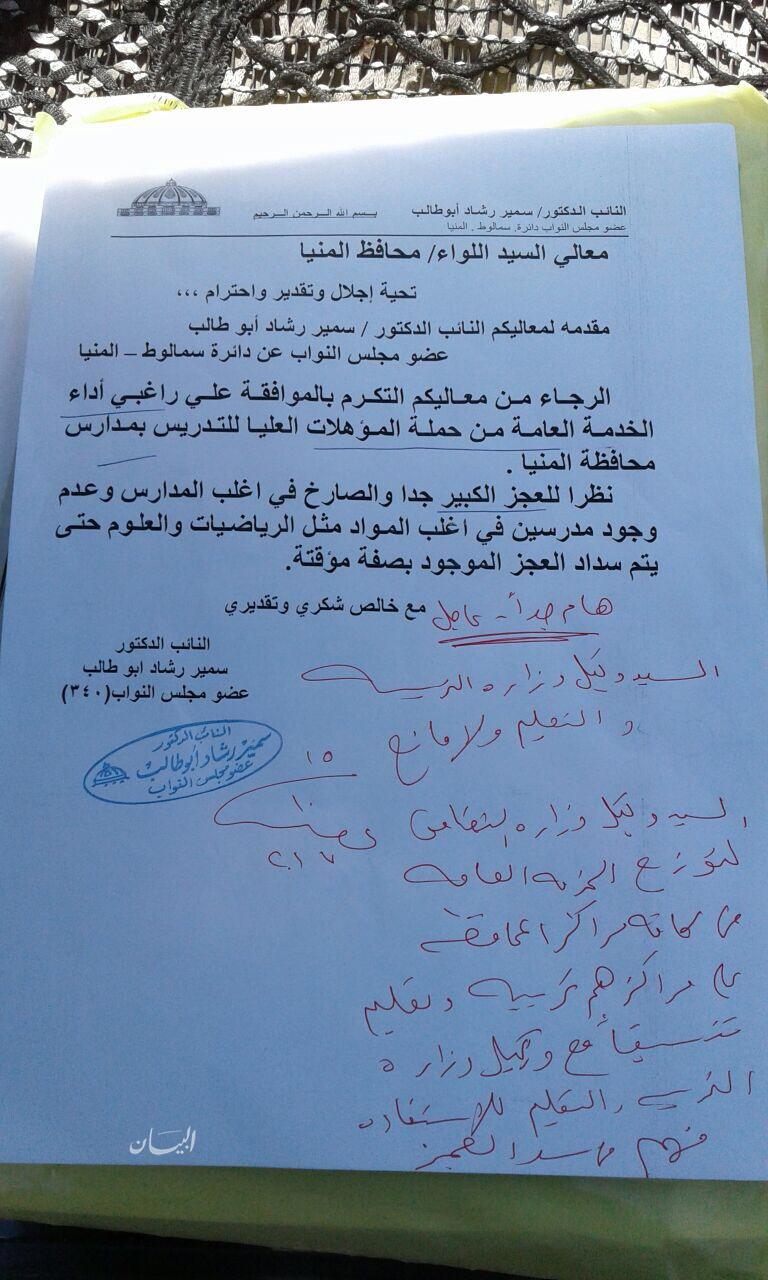 النائب الدكتور/ سمير رشاد أبوطالب
بسم الله الرحمن الرحيم
عضو مجلس النواب دائرة. سمالوط . المنيا
معالي السيد اللواء/ محافظ المنيا
تحية إجلال وتقدير واحترام ،،،
مقدمه لمعاليكم النائب الدكتور / سمير رشاد أبو طالب
عضو مجلس النواب عن دائرة سمالوط – المنيا
الرجاء من معاليكم التكرم بالموافقة علي راغبي أداء
الخدمة العامة من حملة المؤهلات العليا للتدريس بمدارس
محافظة المنيا .
نظرا للعجز الكبير جدا والصارخ في اغلب المدارس وعدم
وجود مدرسين في اغلب المواد مثل الرياضيات والعلوم حتى
يتم سداد العجز الموجود بصفة مؤقتة.
مع خالص شكري وتقديري
هام جداً - عاجل
النائب الدكتور
سمير رشاد ابو طالب
عضو مجلس النواب(٣٤٠)
النائب الدكتور
سمير رشاد أبوطالب
عضو مجلس النواب
السيد وكيل وزارة التربيه
و التعليم ولا مانع
١٥
١٠
٢٠١٧
السيد وكيل وزارة التضامن
لتوزيع الخدمه العامه
من كافه مراكز المحافظه
على مراكزهم تربيه وتعليم
تنسيقاً مع وكيل وزارة
التربيه والتعليم للاستفاده
منهم من سد العجز
البيان